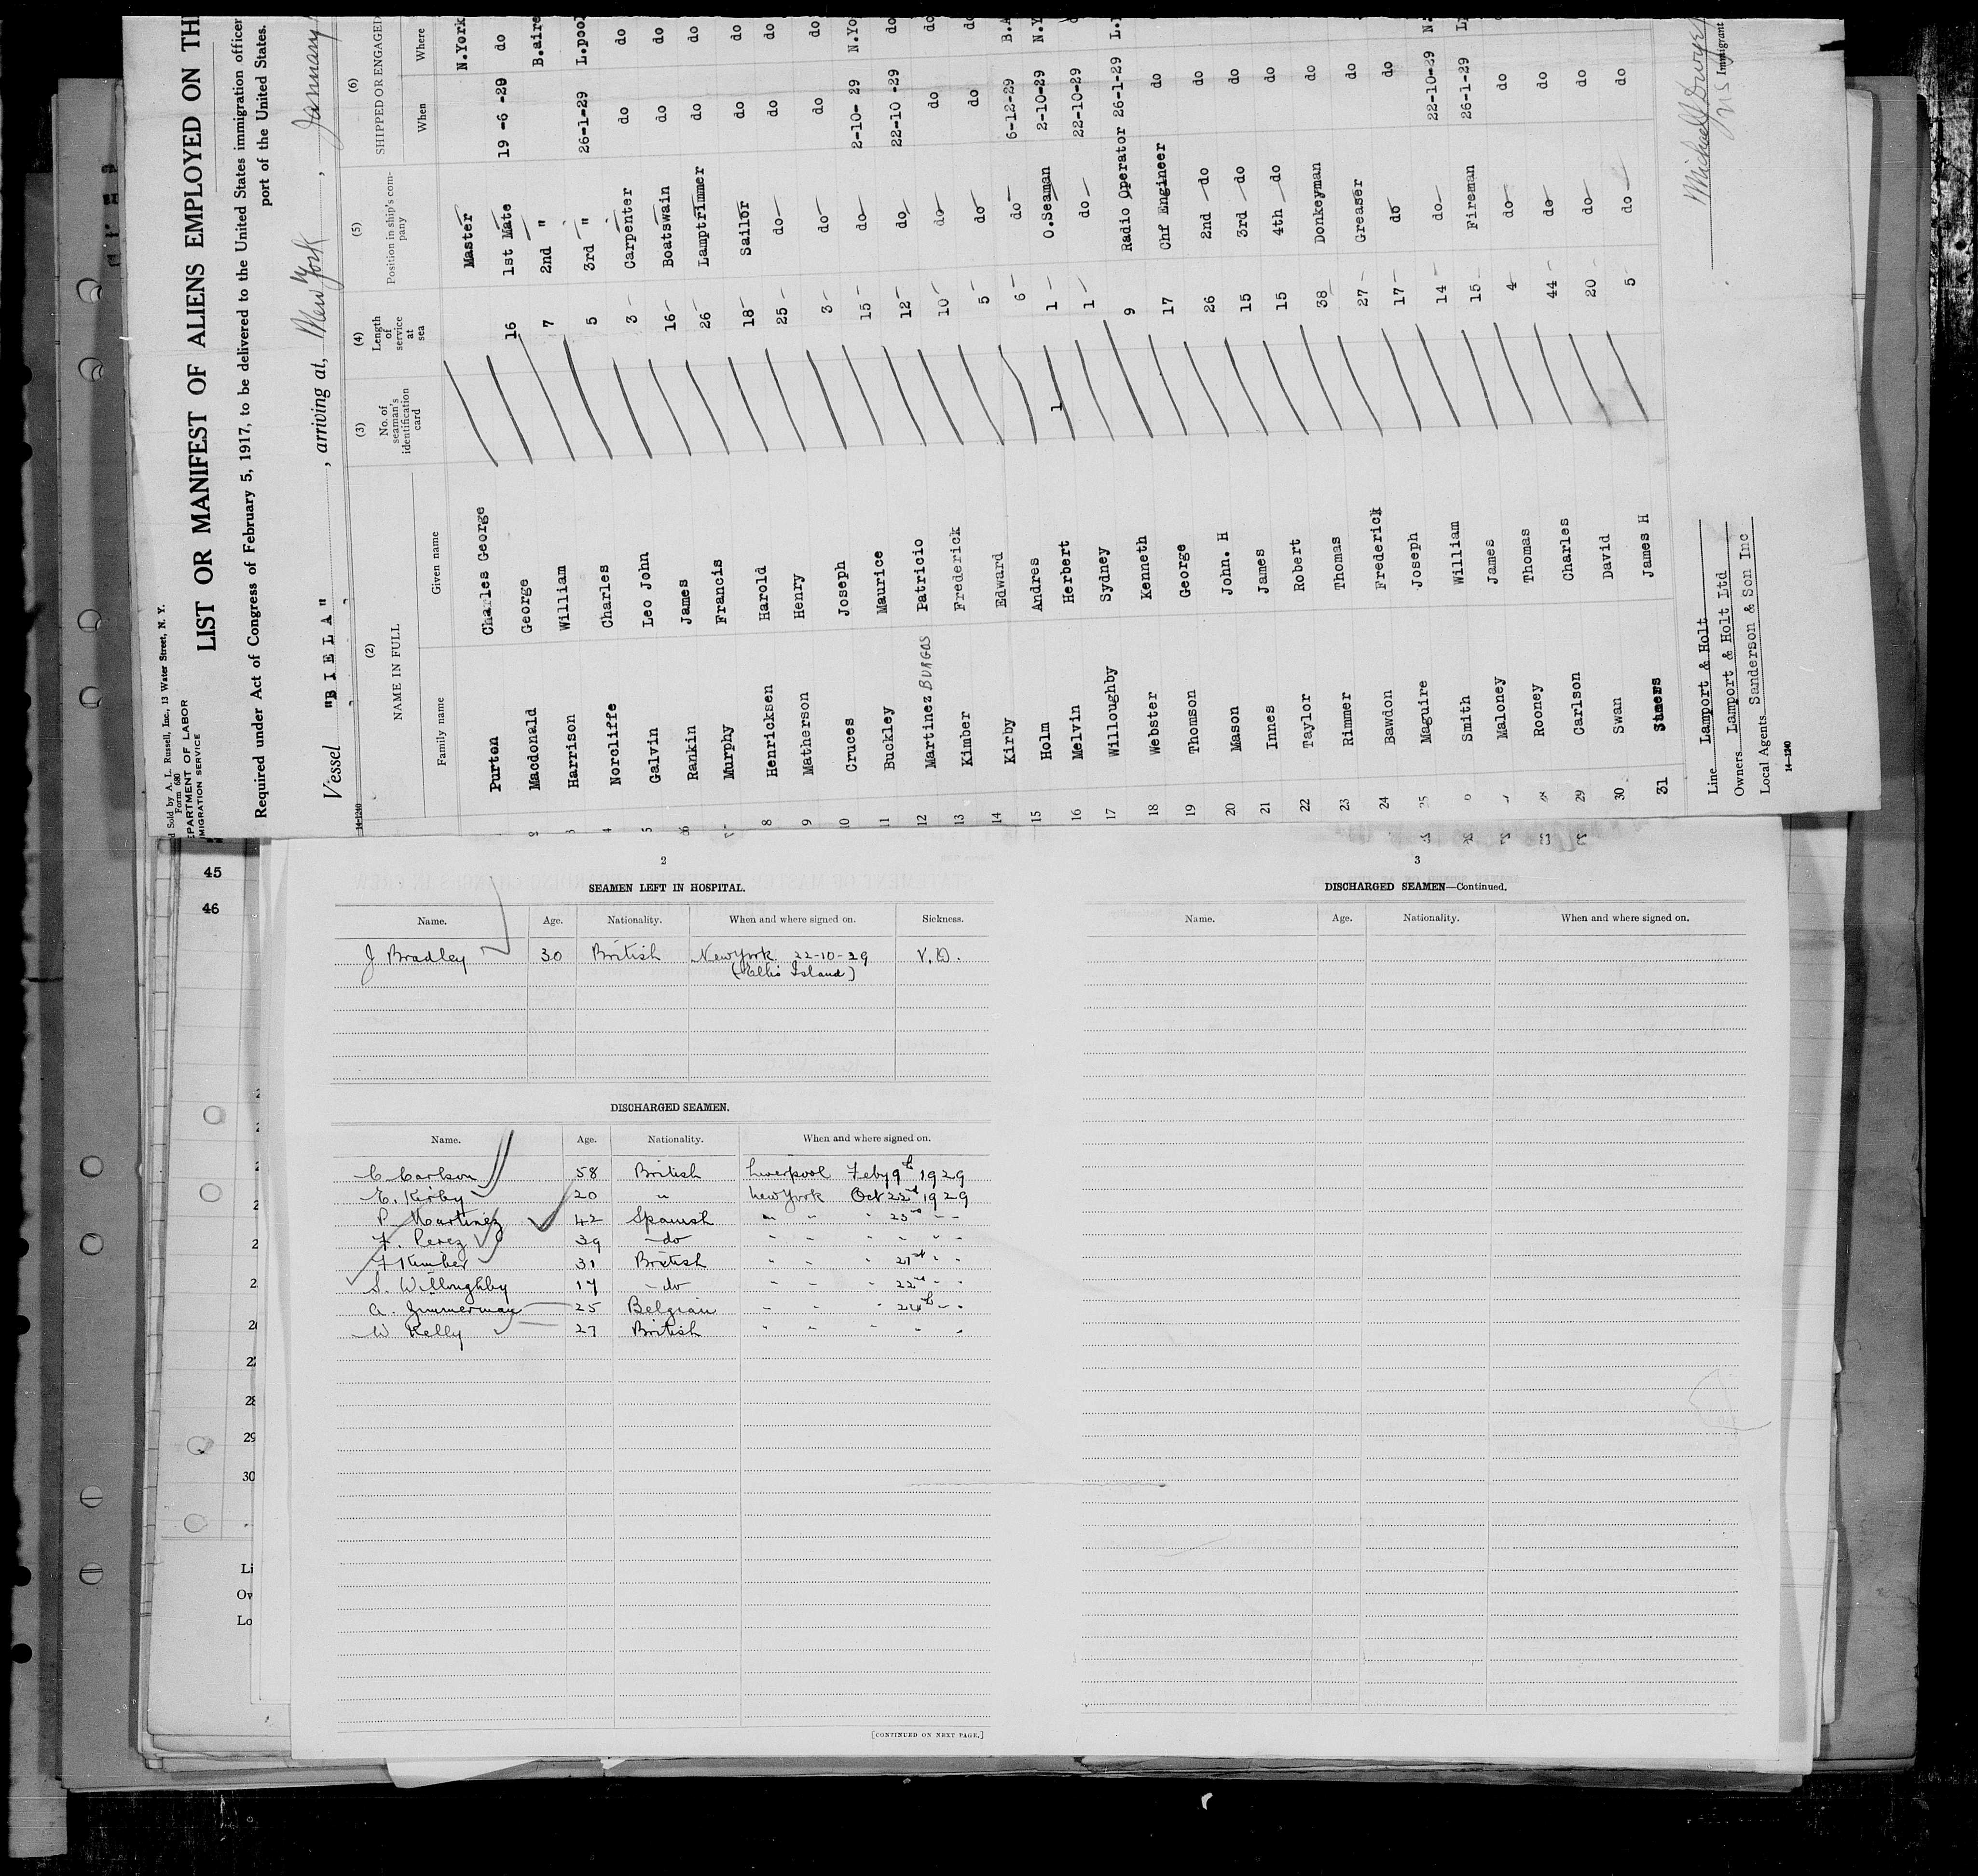 d Sold by A. L. Russell, Inc., 13 Water Street, N. Y.
Form 680
EPARTMENT OF LABOR
MIGRATION SERVICE
LIST OR MANIFEST OF ALIENS EMPLOYED ON TH
Required under Act of Congress of February 5, 1917, to be delivered to the United States immigration officer
port of the United States.
Vessel "BIELA", arriving at, New York, January
14-1240
(2) (3) (4) (5) (6)
NAME IN FULL No. of seaman's identification card Length of service at sea Position in ship's company SHIPPED OR ENGAGED
Family name Given name When Where
Purton Charles George Master N.York
2 Macdonald George 16 1st Mate 19 -6 -29 do
3 Harrison William 7 2nd " B.aire
4 Norcliffe Charles 5 3rd " 26-1-29 L.pool
5 Galvin Leo John 3 Carpenter do do
6 Rankin James 16 Boatswain do do
7 Murphy Francis 26 Lamptrimmer do do
8 Henricksen Harold 18 Sailor do do
9 Matherson Henry 25 do do do
10 Cruces Joseph 3 do do do
11 Buckley Maurice 15 do 2-10- 29 N.Yo
12 Martinez BURGOS Patricio 12 do 22-10 -29 do
13 Kimber Frederick 10 do do do
14 Kirby Edward 5 do do do
15 Holm Andres 6 do 6-12-29 B.A
16 Melvin Herbert 1 O.Seaman 2-10-29 N.Y
17 Willoughby Sydney 1 do 22-10-29
18 Webster Kenneth 9 Radio Operator 26-1-29 L.
19 Thomson George 17 Chf Engineer do
20 Mason John. H 26 2nd do do
21 Innes James 15 3rd do do
22 Taylor Robert 15 4th do do
23 Rimmer Thomas 38 Donkeyman do
24 Bawdon Frederick 27 Greaser do
25 Maguire Joseph 17 do do
Smith William 14 do 22-10-29 N.
Maloney James 15 Fireman 26-1-29 L
Rooney Thomas 4 do do
29 Carlson Charles 44 do do
30 Swan David 20 do do
31 James H 5 do do
Line Lamport & Holt
Owners Lamport & Holt Ltd
Local Agents Sanderson & Son Inc
Immigrant
14-1240
45
46
2
SEAMEN LEFT IN HOSPITAL.
Name. Age. Nationality. When and where signed on. Sickness.
J Bradley 30 British New York 22-10-29 V.D.
(Ellis Island)
DISCHARGED SEAMEN.
Name. Age. Nationality. When and where signed on.
C Carlson 58 British Liverpool Feby 9th 1929
E. Kirby 20 " New York Oct 22nd 1929
P. Martinez 42 Spanish " " " 23rd " "
F. Perez 39 do " " " " " "
F Kimber 31 British " " " 21st " "
S. Willoughby 17 do " " " 22nd " "
A. Zimmerman 25 Belgian " " " 24th " "
W Kelly 27 British " " " " "
[CONTINUED ON NEXT PAGE.]
3
DISCHARGED SEAMEN—Continued.
Name. Age. Nationality. When and where signed on.
28
29
30
Li
Ow
Lo